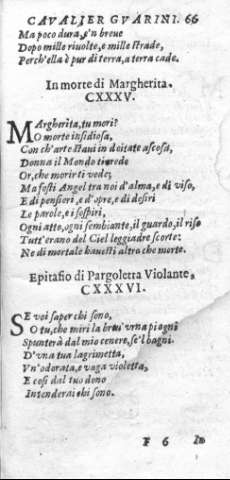 CAVALIER GVARINI. 66
Ma poco dura, e'n breue
Dopo mille riuolte, e mille strade,
Perch'ella è pur di terra, a terra cade.
In morte di Margherita.
CXXXV.
MArgherita, tu mori?
O morte insidiosa,
Con ch'arte stavi in doitate ascosa,
Donna il Mondo ti
Or, che morir ti vede;
Ma fosti Angel tra noi d'alma, e di viso,
E di pensieri, e d'opre, e di desiri
Le parole, e i sospiri,
Ogni atto, ogni sembiante, il guardo, il riso
Tutt'erano del Ciel leggiadre scorte:
Ne di mortale hauesti altro che morte.
Epitafio di Pargoletta Violante,
CXXXVI.
SE voi saper chi sono,
O tu, che miri la breu'vrna piagni
Spunterà dal mio cenere, se'l bagni.
D'vna tua lagrimetta,
Vn'odorata, e vaga violetta,
E così dal tuo dono
Intenderai chi sono.
F 6 In